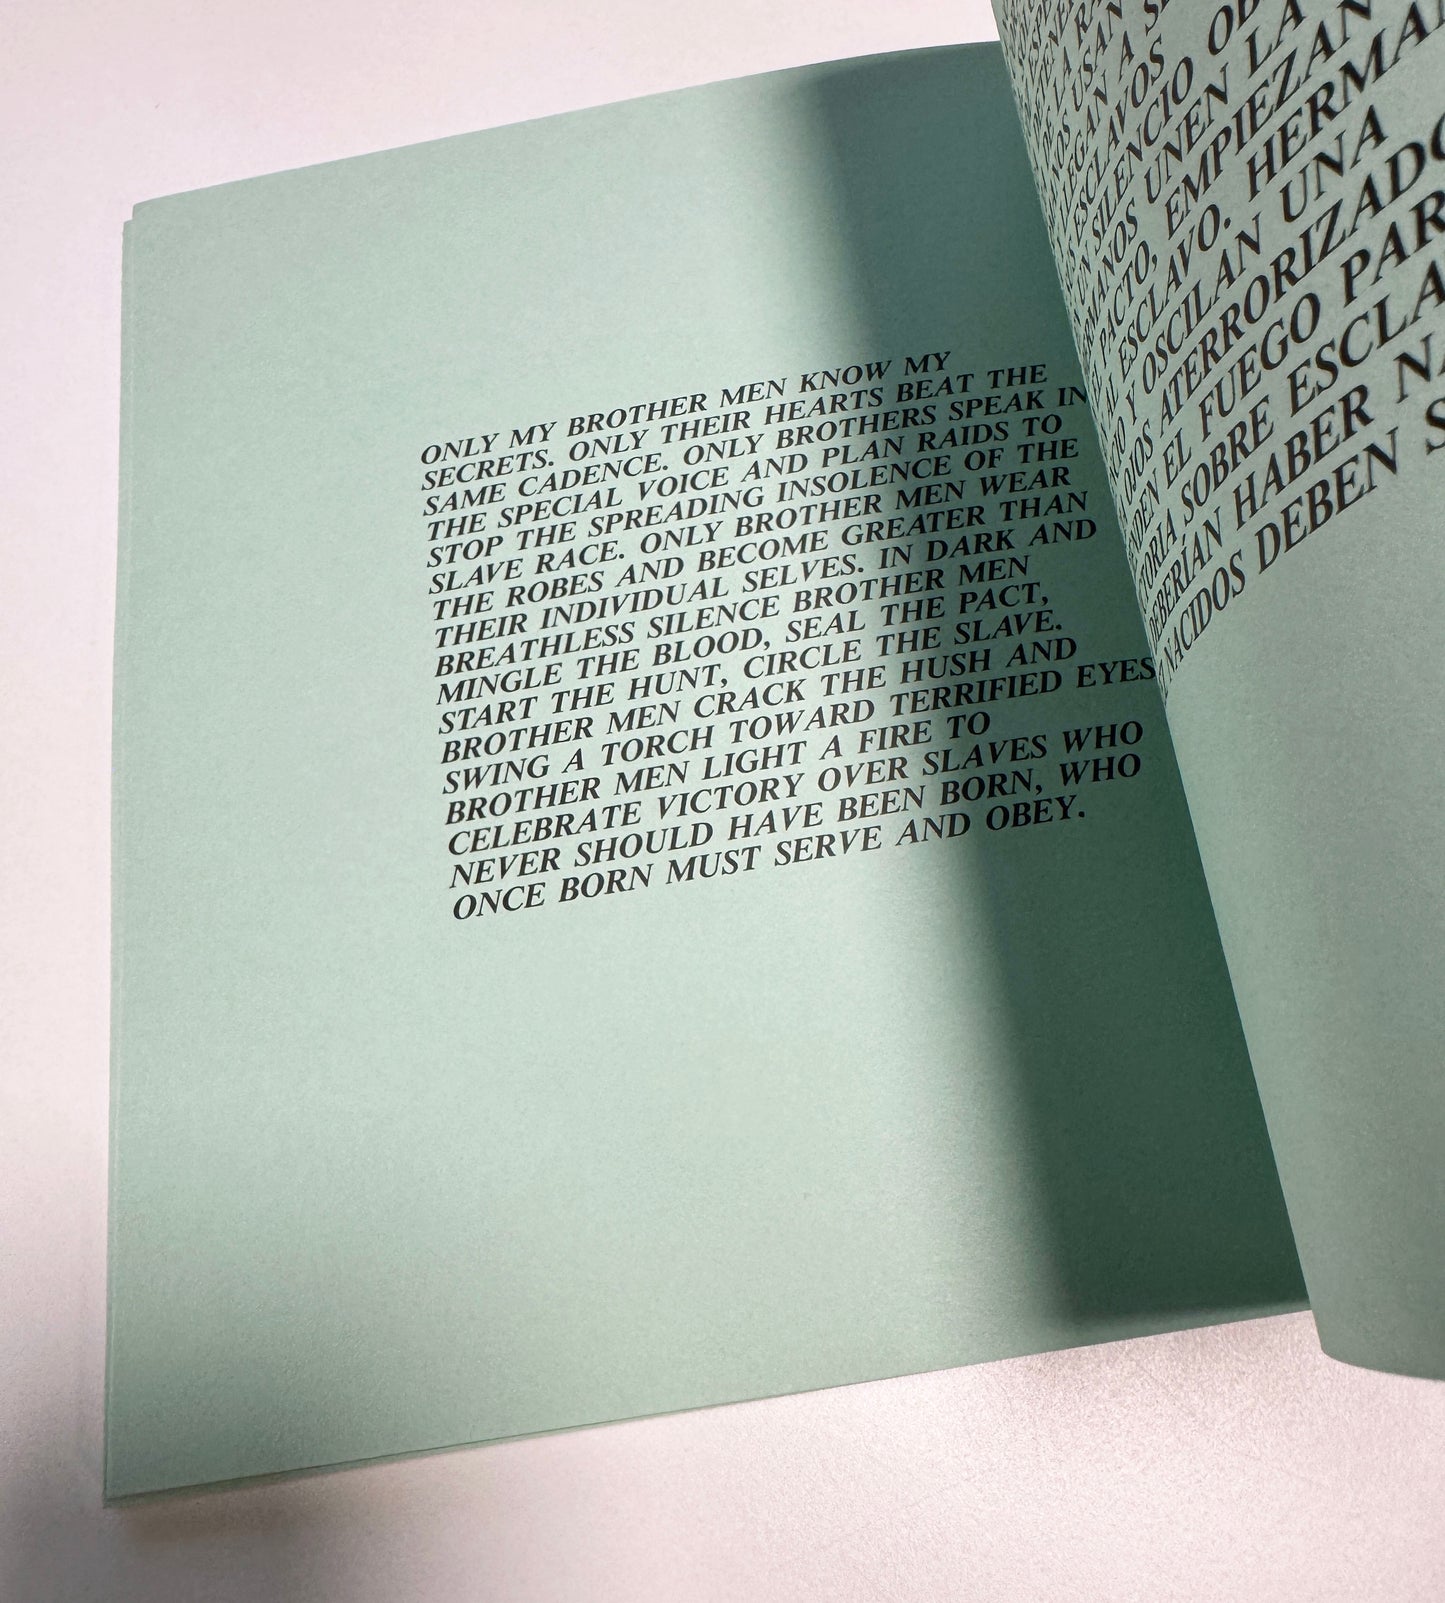 ONLY MY BROTHER MEN KNOW MY
SECRETS. ONLY THEIR HEARTS BEAT THE
SAME CADENCE. ONLY BROTHERS SPEAK IN
THE SPECIAL VOICE AND PLAN RAIDS TO
STOP THE SPREADING INSOLENCE OF THE
SLAVE RACE. ONLY BROTHER MEN WEAR
THE ROBES AND BECOME GREATER THAN
THEIR INDIVIDUAL SELVES. IN DARK AND
BREATHLESS SILENCE BROTHER MEN
MINGLE THE BLOOD, SEAL THE PACT,
START THE HUNT, CIRCLE THE SLAVE.
BROTHER MEN CRACK THE HUSH AND
SWING A TORCH TOWARD TERRIFIED EYES
BROTHER MEN LIGHT A FIRE TO
CELEBRATE VICTORY OVER SLAVES WHO
NEVER SHOULD HAVE BEEN BORN, WHO
ONCE BORN MUST SERVE AND OBEY.
LA
USAN
A
ESCLAVOS
SILENCIO
UNEN LA
PACTO, EMPIEZAN
AL ESCLAVO. HERMA
Y OSCILAN UNA
OJOS ATERRORIZADO
EL FUEGO PAR
SOBRE ESCLA
DEBERÍAN HABER NA
NACIDOS DEBEN S